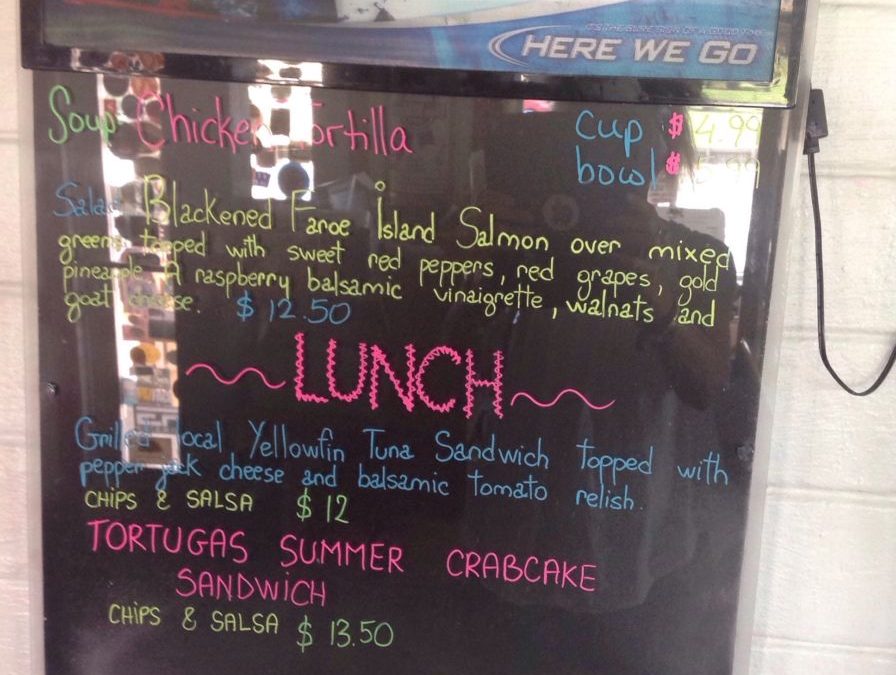 HERE WE GO
Soup Chicken Tortilla
Cup $ 4.99
bowl $ .99
Salad Blackened Faroe Island Salmon over mixed
greens topped with sweet red peppers, red grapes, gold
pineapple. A raspberry balsamic vinaigrette, walnats and
goat cheese. $ 12.50
~LUNCH~
Grilled local Yellowfin Tuna Sandwich topped with
pepper jack cheese and balsamic tomato relish.
CHiPS & SALSA $ 12
TORTUGAS SUMMER CRABCAKE
SANDWiCH
CHiPS & SALSA $ 13.50